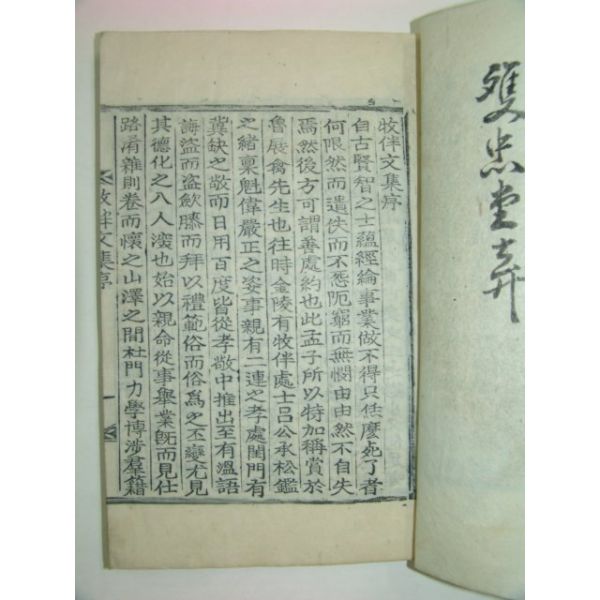 雙忠堂弆
牧伴文集序
自古賢智之士蘊經綸事業做不得只恁麽死了者
何限然而遺佚而不怨阨窮而無憫由由然不自失
焉然後方可謂善處約也此孟子所以特加稱賞於
魯展禽先生也往時金陵有牧伴處士呂公承松鑑
之緒稟魁偉嚴正之姿事親有二連之孝處閨門有
冀缺之敬而日用百度皆從孝敬中推出至有溫語
誨盜而盜歛膝而拜以禮範俗而俗爲之丕變尤見
其德化之入人深也始以親命從事舉業旣而見仕
路淆雜則卷而懷之山澤之間杜門力學博涉羣籍
牧伴文集序 一